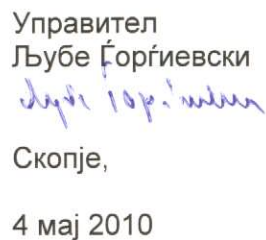 Управител
Љубе Ѓорѓиевски
Љубе Ѓорѓиевски
Скопје,
4 мај 2010